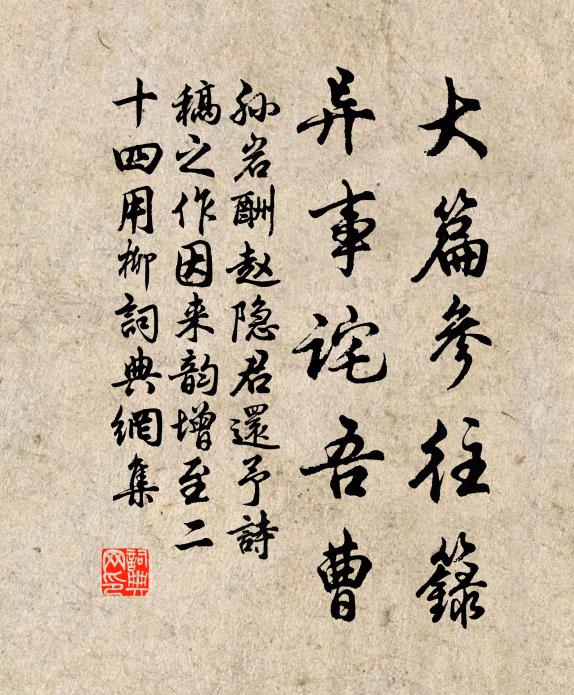 大篇參往籙
异事诧吾曹
孙岩酬赵隐君還予詩
稿之作因来韵增至二
十四用柳詞典網集
詞典网印